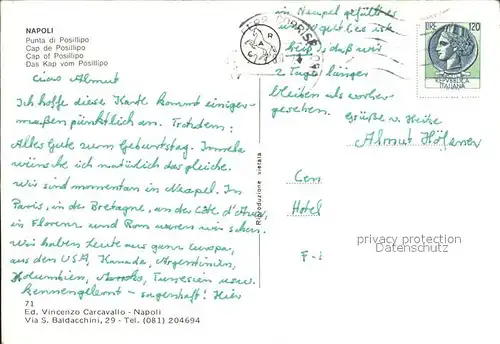 NAPOLI
Punta di Posillipo
Cap de Posillipo
Cap of Posillipo
Das Kap vom Posillipo
Ciao Almut
Ich hoffe diese Karte kommt einiger-
maßen pünktlich an. Trotzdem:
Alles Gute zum Geburtstag. Immela
wünsche ich natürlich das gleiche.
Wir sind momentan in Neapel. In
Paris, in der Bretagne, an der Côte d'Azur,
in Florenz und Rom waren wir schon.
Wir haben Leute aus ganz Europa,
aus den USA, Kanada, Argentinien,
Kolumbien, Tunesien usw.
kennengelernt - sagenhaft! Hier
in Neapel gefällt es
uns
heiß, daß wir
2 Tage länger
bleiben als vorher
gesehen.
Grüße v. Heike
Almut
Hotel
LIRE 120
REPVBBLICA
ITALIANA
Riproduzione vietata
privacy protection
Datenschutz
71
Ed. Vincenzo Carcavallo - Napoli
Via S. Baldacchini, 29 - Tel. (081) 204694